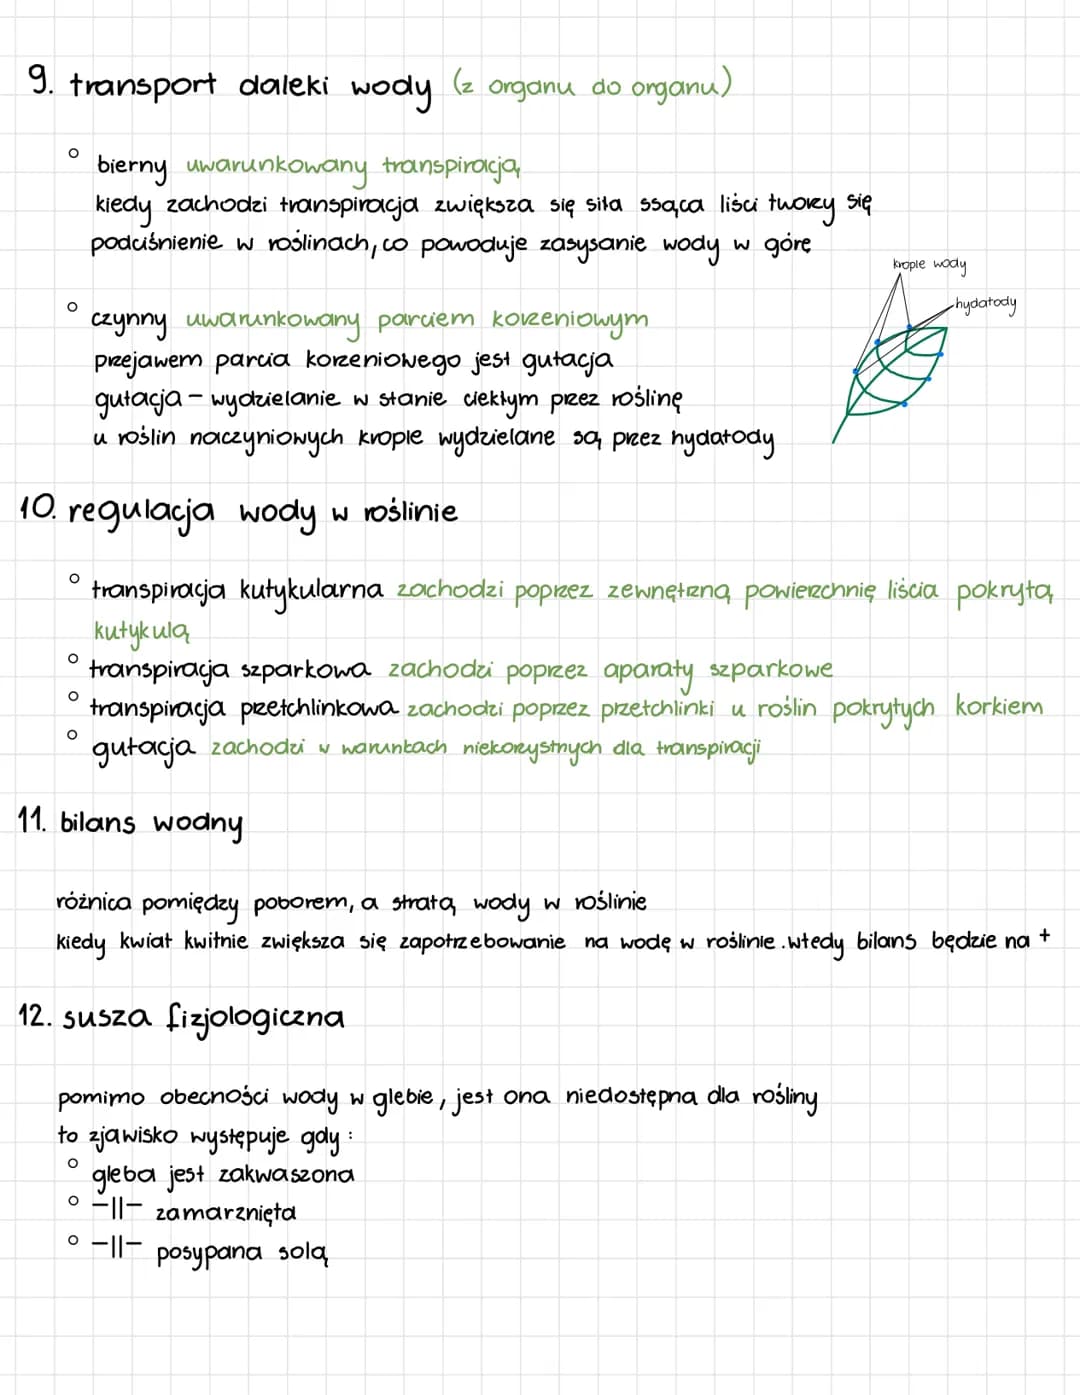 9. transport daleki wody (z organu do organu)
° bierny uwarunkowany transpiracją
kiedy zachodzi transpiracja zwiększa się siła ssąca liści tworzy się
podciśnienie w roślinach, co powoduje zasysanie wody w górę
krople wody
hydatody
° czynny uwarunkowany parciem korzeniowym
przejawem parcia korzeniowego jest gutacja
gutacja - wydzielanie w stanie ciekłym przez roślinę
u roślin naczyniowych krople wydzielane są przez hydatody
10. regulacja wody w roślinie
° transpiracja kutykularna zachodzi poprzez zewnętrzną powierzchnię liścia pokrytą
kutykulą
° transpiracja szparkowa zachodzi poprzez aparaty szparkowe
° transpiracja przetchlinkowa zachodzi poprzez przetchlinki u roślin pokrytych korkiem
° gutacja zachodzi w warunkach niekorzystnych dla transpiracji
11. bilans wodny
różnica pomiędzy poborem, a stratą wody w roślinie
kiedy kwiat kwitnie zwiększa się zapotrzebowanie na wodę w roślinie. wtedy bilans będzie na +
12. susza fizjologiczna
pomimo obecności wody w glebie, jest ona niedostępna dla rośliny
to zjawisko występuje gdy :
° gleba jest zakwaszona
° -||- zamarznięta
° -||- posypana solą